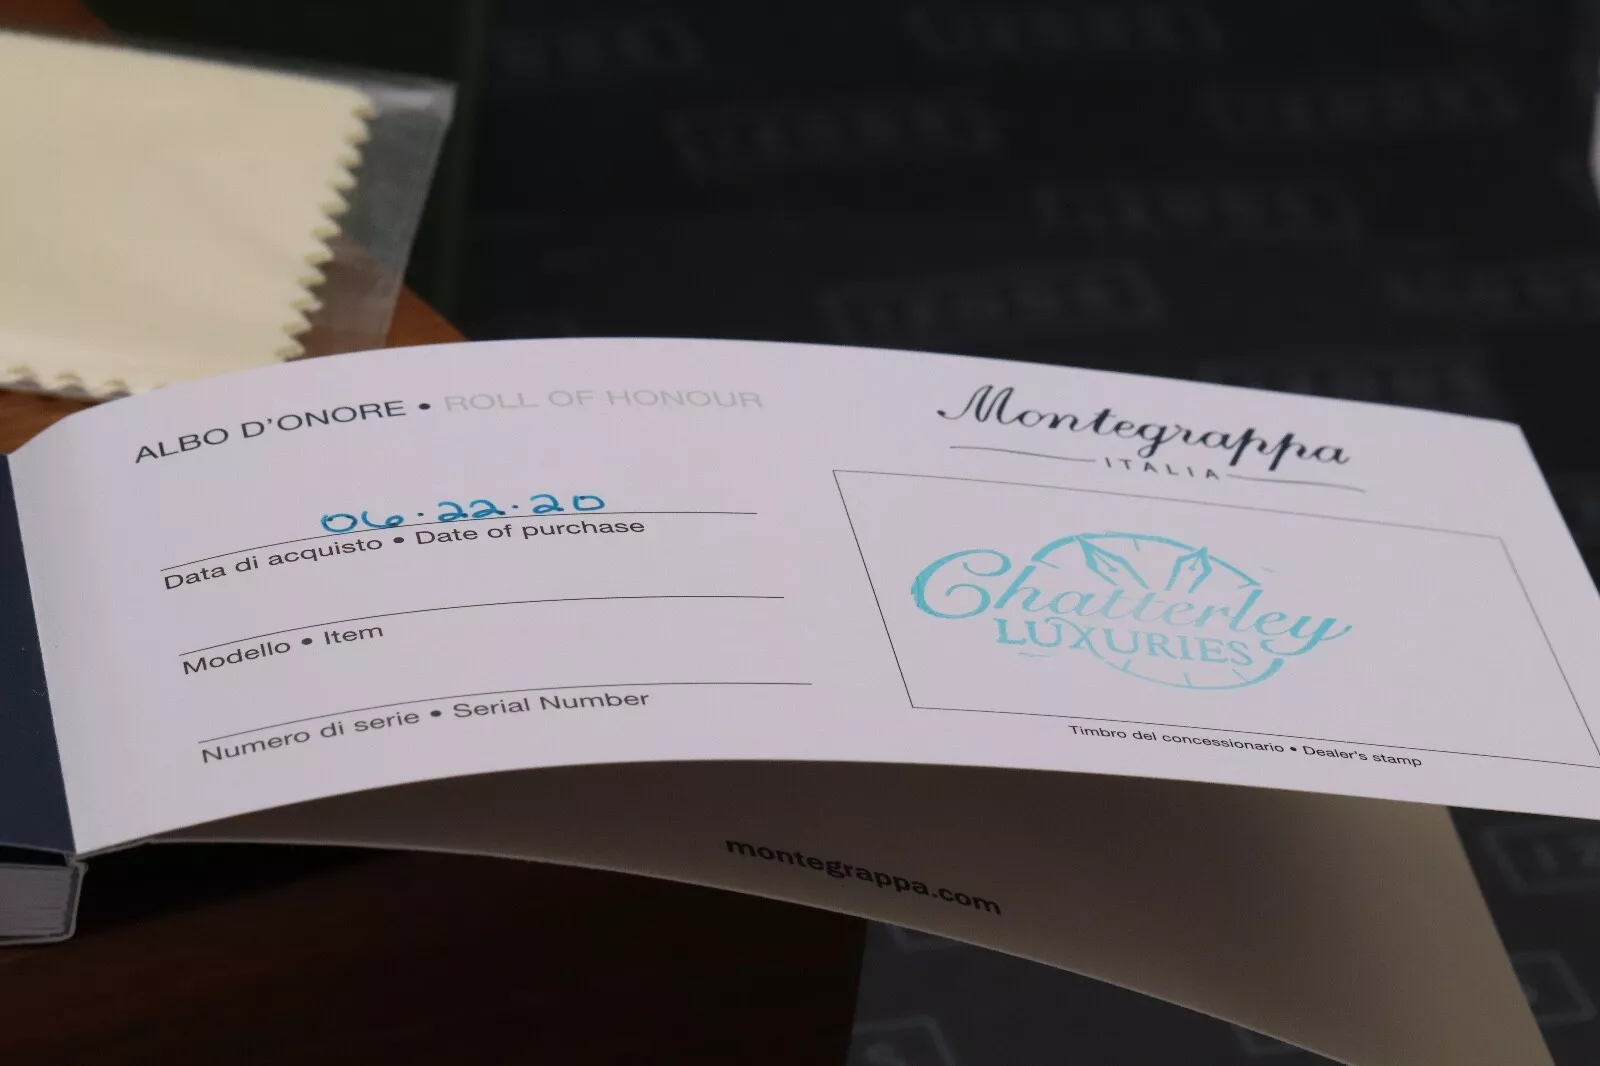 ALBO D'ONORE • ROLL OF HONOUR
06.22.20
Data di acquisto • Date of purchase
Modello • Item
Numero di serie • Serial Number
Montegrappa
ITALIA
Chatterley
LUXURIES
Timbro del concessionario • Dealer's stamp
montegrappa.com